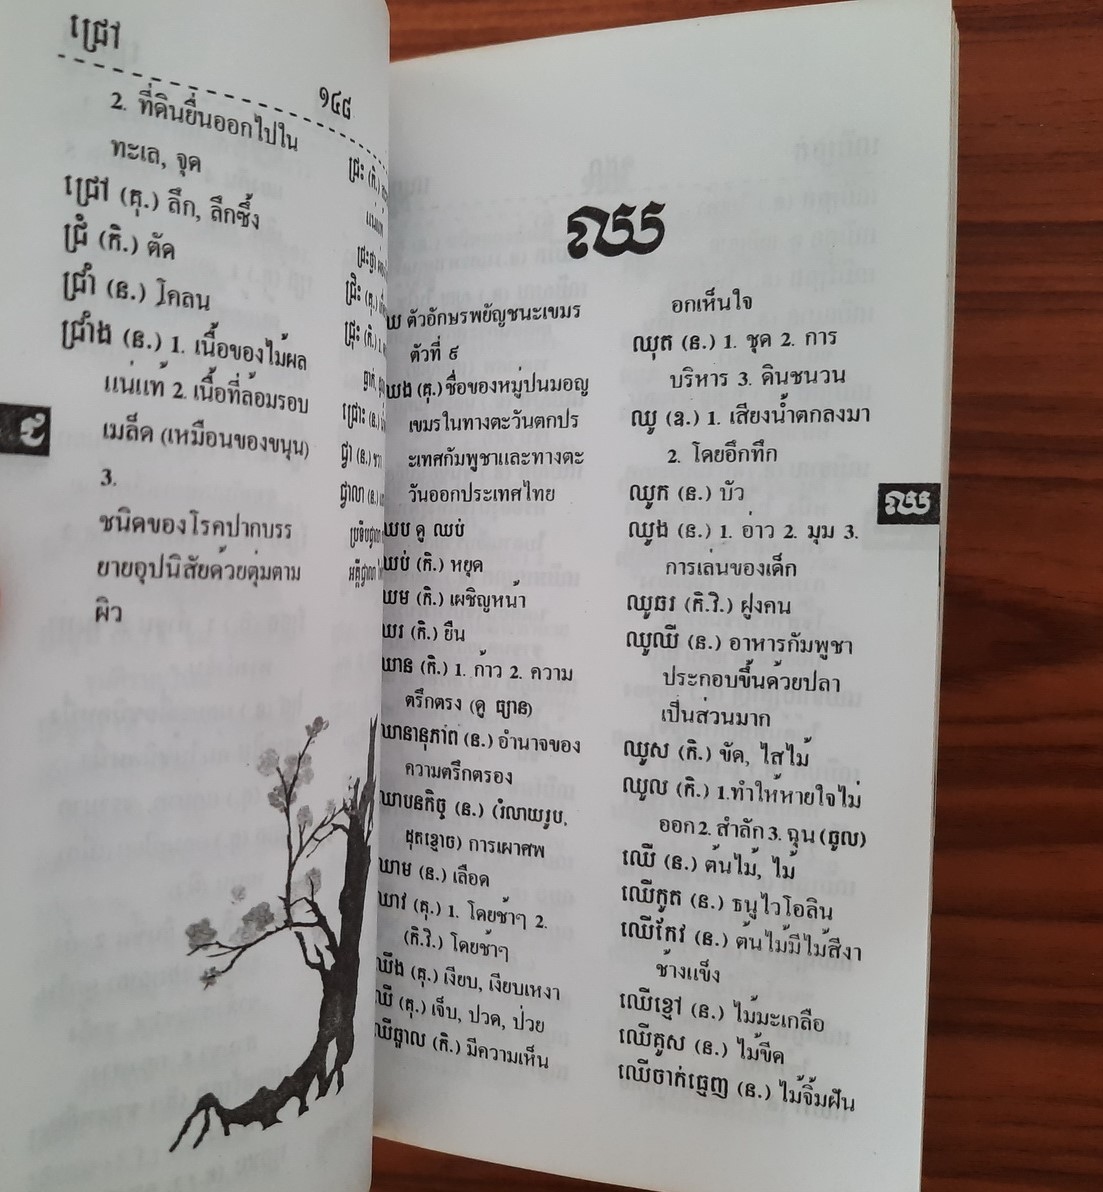 ជ្រៅ
๑๔๘
2. ที่ดินยื่นออกไปใน
ทะเล, จุด
ជ្រៅ (គុ.) ลึก, ลึกซึ้ง
ជ្រំ (កិ.) ตัด
ជ្រាំ (ន.) โคลน
ជ្រាំង (ន.) 1. เนื้อของไม้ผล
แน่แท้ 2. เนื้อที่ล้อมรอบ
เมล็ด (เหมือนของขนุน)
3.
ชนิดของโรคปากบรร
ยายอุปนิสัยด้วยตุ่มตาม
ผิว
ជ្រះ (កិ.)
ជ្រិះ (គុ.)
ជ្រុះ (កិ.)
ជ្រោះ (ន.)
ជ្វា (ន.) ชวา
ជ្វាលា (ន.)
ឈ
ឈ ตัวอักษรพยัญชนะเขมร
ตัวที่ ๙
ឈង (គុ.) ชื่อของหมู่ปนมอญ
เขมรในทางตะวันตกปร
ะเทศกัมพูชาและทางตะ
วันออกประเทศไทย
ឈប ดู ឈប់
ឈប់ (កិ.) หยุด
ឈម (កិ.) เผชิญหน้า
ឈរ (កិ.) ยืน
ឈាន (កិ.) 1. ก้าว 2. ความ
ตรึกตรง (ดู ធ្យាន)
ឈានានុភាព (ន.) อำนาจของ
ความตรึกตรอง
ឈាបនកិច្ច (ន.) (រំលាយរូប,
ដុតខ្មោច) การเผาศพ
ឈាម (ន.) เลือด
ឈាវ (គុ.) 1. โดยช้าๆ 2.
(កិ.វិ.) โดยช้าๆ
ឈឹង (គុ.) เงียบ, เงียบเหงา
ឈឺ (គុ.) เจ็บ, ปวด, ป่วย
ឈឺឆ្អាល (កិ.) มีความเห็น
อกเห็นใจ
ឈុត (ន.) 1. ชุด 2. การ
บริหาร 3. ดินชนวน
ឈូ (ឧ.) 1. เสียงน้ำตกลงมา
2. โดยอึกทึก
ឈូក (ន.) บัว
ឈូង (ន.) 1. อ่าว 2. มุม 3.
การเล่นของเด็ก
ឈូឆរ (កិ.វិ.) ฝูงคน
ឈូឈី (ន.) อาหารกัมพูชา
ประกอบขึ้นด้วยปลา
เป็นส่วนมาก
ឈូស (កិ.) ขัด, ไสไม้
ឈូល (កិ.) 1.ทำให้หายใจไม่
ออก 2. สำลัก 3. ฉุน (ឆួល)
ឈើ (ន.) ต้นไม้, ไม้
ឈើកូត (ន.) ธนูไวโอลิน
ឈើកែវ (ន.) ต้นไม้มีไม้สีงา
ช้างแข็ง
ឈើខ្មៅ (ន.) ไม้มะเกลือ
ឈើគូស (ន.) ไม้ขีด
ឈើចាក់ធ្មេញ (ន.) ไม้จิ้มฟัน
ឈ